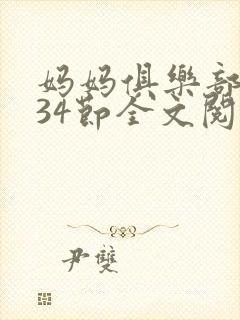 妈妈俱樂部
34节全文閱
尹雙